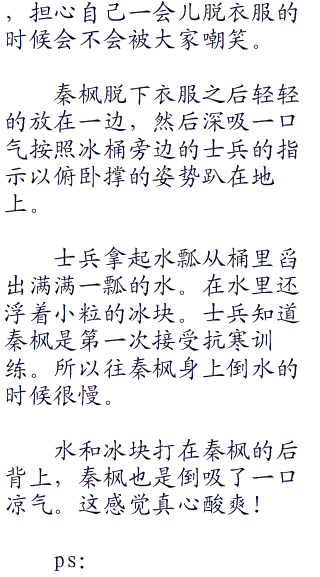 ，担心自己一会儿脱衣服的
时候会不会被大家嘲笑。
秦枫脱下衣服之后轻轻
的放在一边，然后深吸一口
气按照冰桶旁边的士兵的指
示以俯卧撑的姿势趴在地
上。
士兵拿起水瓢从桶里舀
出满满一瓢的水。在水里还
浮着小粒的冰块。士兵知道
秦枫是第一次接受抗寒训
练。所以往秦枫身上倒水的
时候很慢。
水和冰块打在秦枫的后
背上，秦枫也是倒吸了一口
凉气。这感觉真心酸爽！
ps: